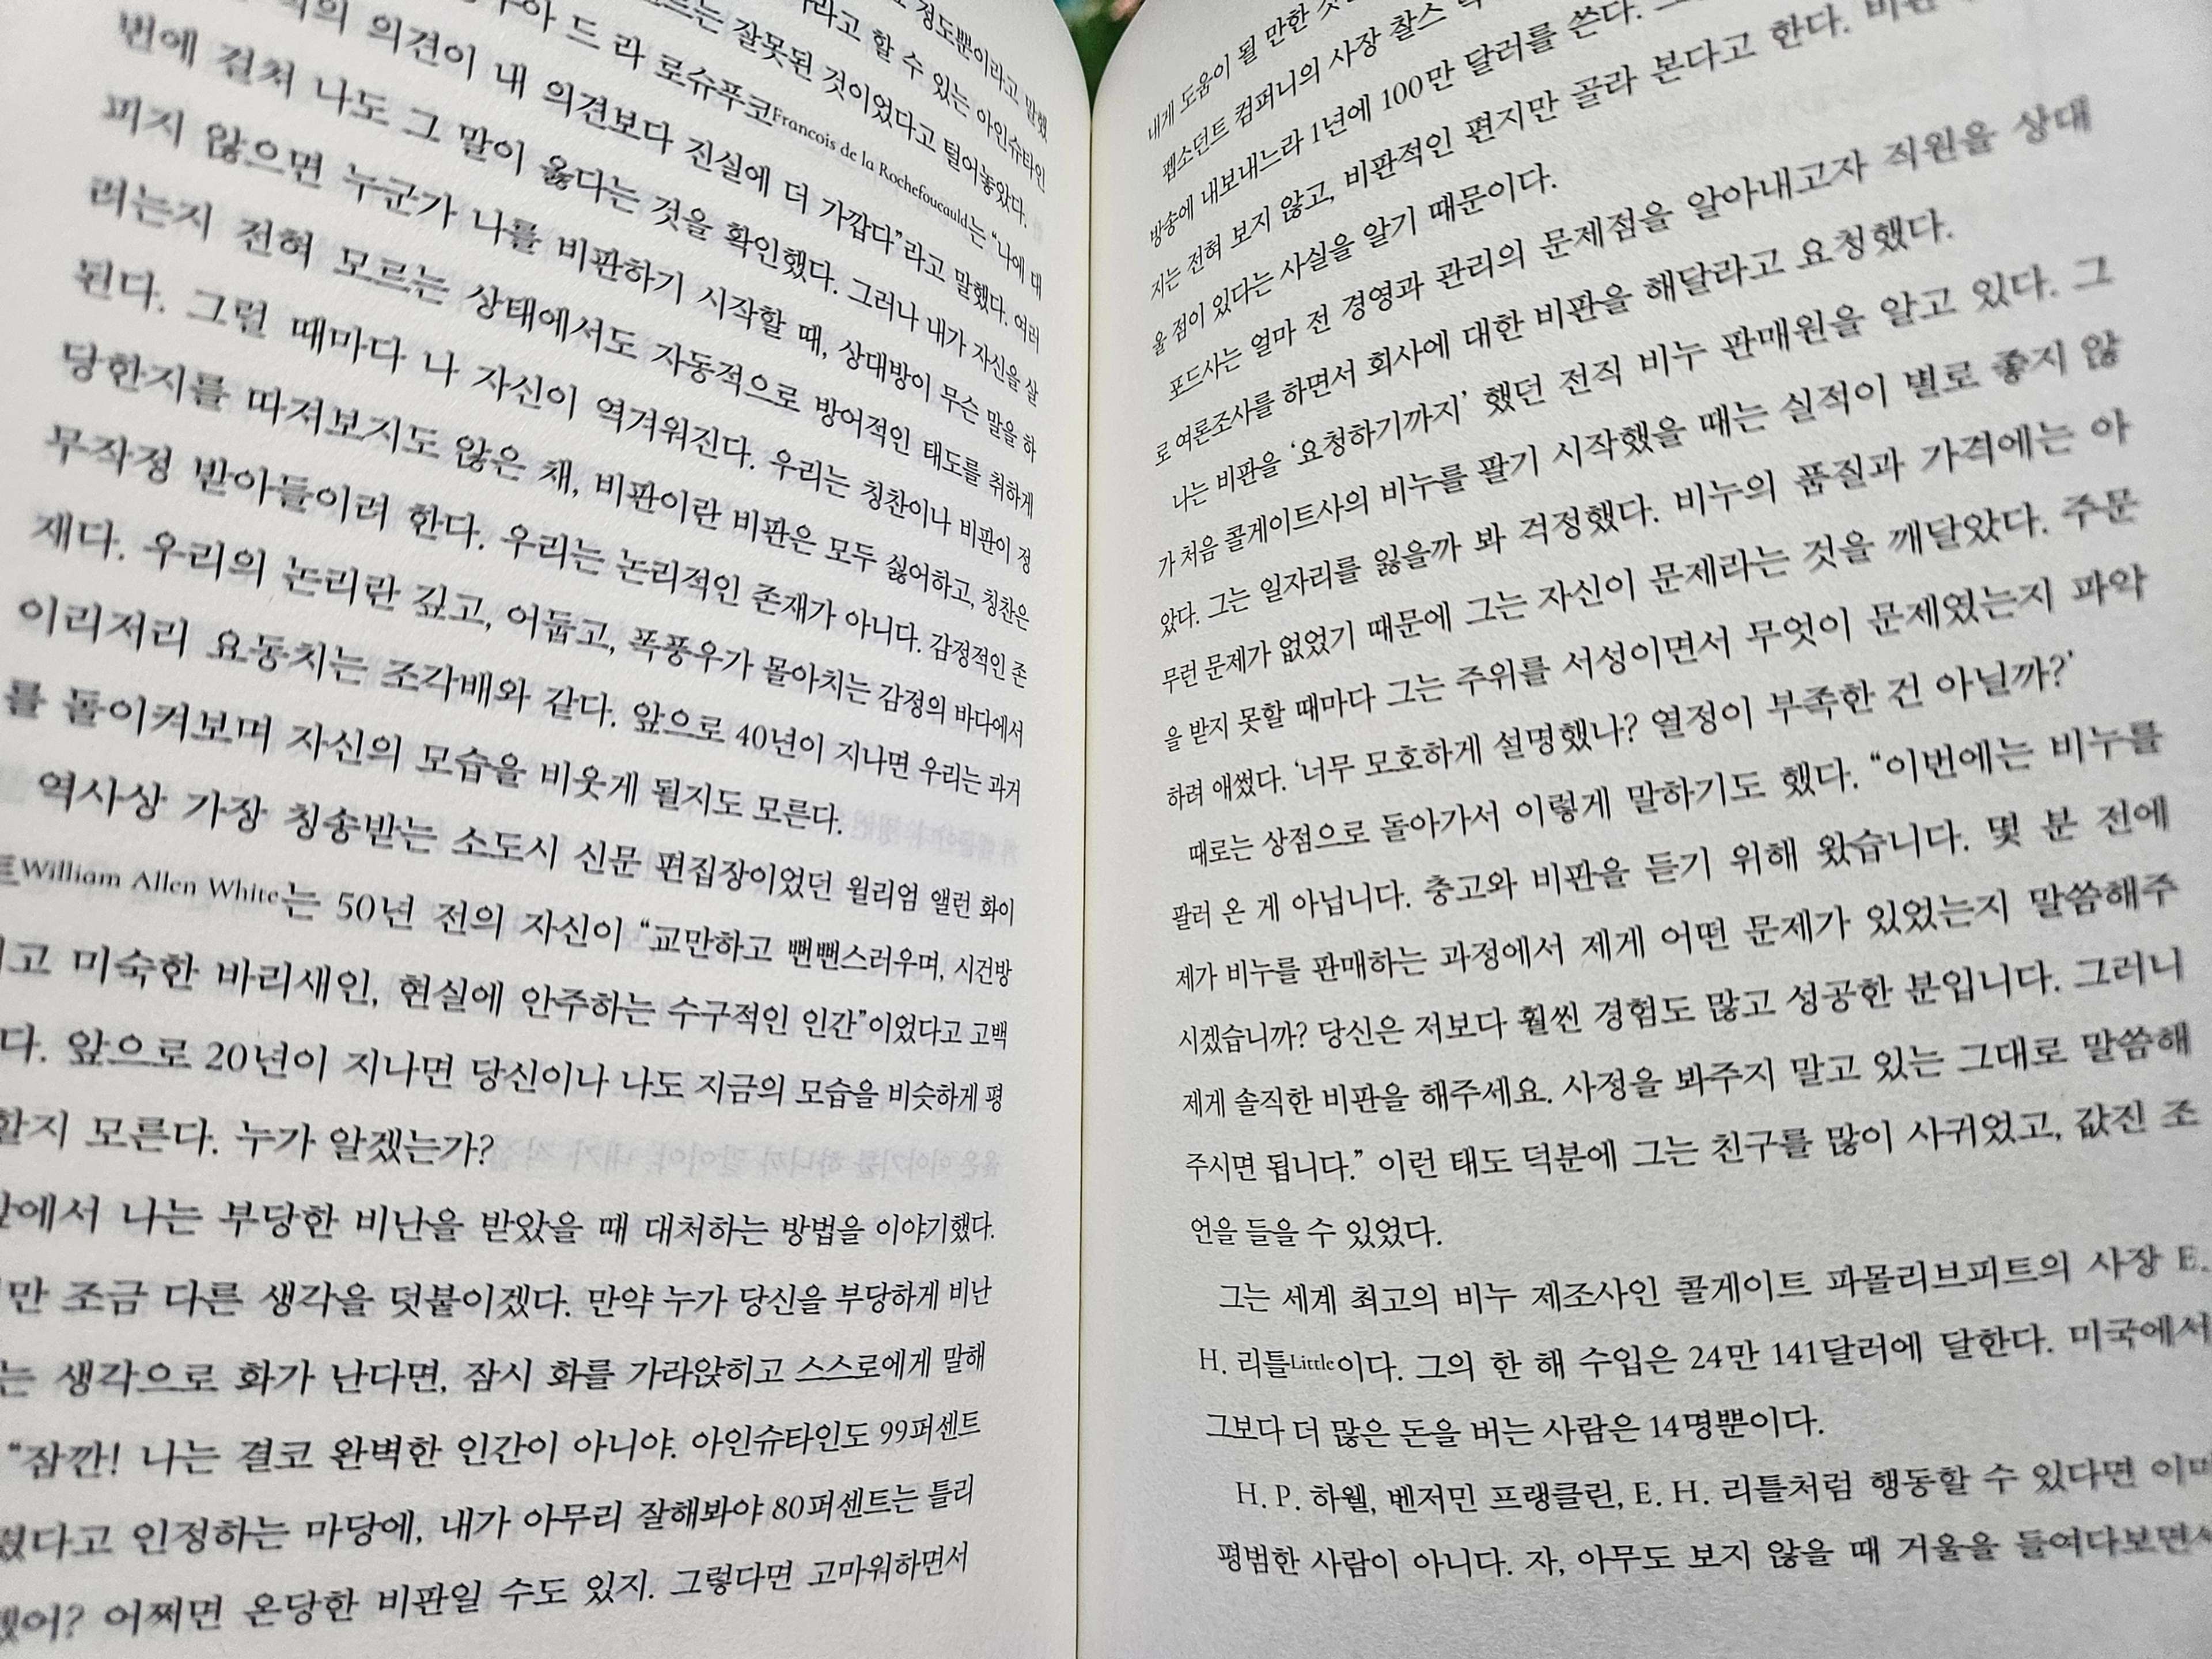 정도뿐이라고 말했
라고 할 수 있는 아인슈타인
는 잘못된 것이었다고 털어놓았다.
드 라 로슈푸코Francois de la Rochefoucauld는 “나에 대
의 의견이 내 의견보다 진실에 더 가깝다”라고 말했다. 여러
번에 걸쳐 나도 그 말이 옳다는 것을 확인했다. 그러나 내가 자신을 살
피지 않으면 누군가 나를 비판하기 시작할 때, 상대방이 무슨 말을 하
려는지 전혀 모르는 상태에서도 자동적으로 방어적인 태도를 취하게
된다. 그런 때마다 나 자신이 역겨워진다. 우리는 칭찬이나 비판이 정
당한지를 따져보지도 않은 채, 비판이란 비판은 모두 싫어하고, 칭찬은
무작정 받아들이려 한다. 우리는 논리적인 존재가 아니다. 감정적인 존
재다. 우리의 논리란 깊고, 어둡고, 폭풍우가 몰아치는 감정의 바다에서
이리저리 요동치는 조각배와 같다. 앞으로 40년이 지나면 우리는 과거
를 돌이켜보며 자신의 모습을 비웃게 될지도 모른다.
역사상 가장 칭송받는 소도시 신문 편집장이었던 윌리엄 앨런 화이
트William Allen White는 50년 전의 자신이 “교만하고 뻔뻔스러우며, 시건방
고 미숙한 바리새인, 현실에 안주하는 수구적인 인간”이었다고 고백
다. 앞으로 20년이 지나면 당신이나 나도 지금의 모습을 비슷하게 평
할지 모른다. 누가 알겠는가?
에서 나는 부당한 비난을 받았을 때 대처하는 방법을 이야기했다.
만 조금 다른 생각을 덧붙이겠다. 만약 누가 당신을 부당하게 비난
는 생각으로 화가 난다면, 잠시 화를 가라앉히고 스스로에게 말해
“잠깐! 나는 결코 완벽한 인간이 아니야. 아인슈타인도 99퍼센트
렸다고 인정하는 마당에, 내가 아무리 잘해봐야 80퍼센트는 틀리
겠어? 어쩌면 온당한 비판일 수도 있지. 그렇다면 고마워하면서
내게 도움이 될 만한
펩소던트 컴퍼니의 사장 찰스
방송에 내보내느라 1년에 100만 달러를 쓴다.
지는 전혀 보지 않고, 비판적인 편지만 골라 본다고 한다.
울 점이 있다는 사실을 알기 때문이다.
포드사는 얼마 전 경영과 관리의 문제점을 알아내고자 직원을 상대
로 여론조사를 하면서 회사에 대한 비판을 해달라고 요청했다.
나는 비판을 ‘요청하기까지’ 했던 전직 비누 판매원을 알고 있다. 그
가 처음 콜게이트사의 비누를 팔기 시작했을 때는 실적이 별로 좋지 않
았다. 그는 일자리를 잃을까 봐 걱정했다. 비누의 품질과 가격에는 아
무런 문제가 없었기 때문에 그는 자신이 문제라는 것을 깨달았다. 주문
을 받지 못할 때마다 그는 주위를 서성이면서 무엇이 문제였는지 파악
하려 애썼다. ‘너무 모호하게 설명했나? 열정이 부족한 건 아닐까?’
때로는 상점으로 돌아가서 이렇게 말하기도 했다. “이번에는 비누를
팔러 온 게 아닙니다. 충고와 비판을 듣기 위해 왔습니다. 몇 분 전에
제가 비누를 판매하는 과정에서 제게 어떤 문제가 있었는지 말씀해주
시겠습니까? 당신은 저보다 훨씬 경험도 많고 성공한 분입니다. 그러니
제게 솔직한 비판을 해주세요. 사정을 봐주지 말고 있는 그대로 말씀해
주시면 됩니다.” 이런 태도 덕분에 그는 친구를 많이 사귀었고, 값진 조
언을 들을 수 있었다.
그는 세계 최고의 비누 제조사인 콜게이트 파몰리브피트의 사장 E.
H. 리틀Little이다. 그의 한 해 수입은 24만 141달러에 달한다. 미국에서
그보다 더 많은 돈을 버는 사람은 14명뿐이다.
H. P. 하웰, 벤저민 프랭클린, E. H. 리틀처럼 행동할 수 있다면 이미
평범한 사람이 아니다. 자, 아무도 보지 않을 때 거울을 들여다보면서